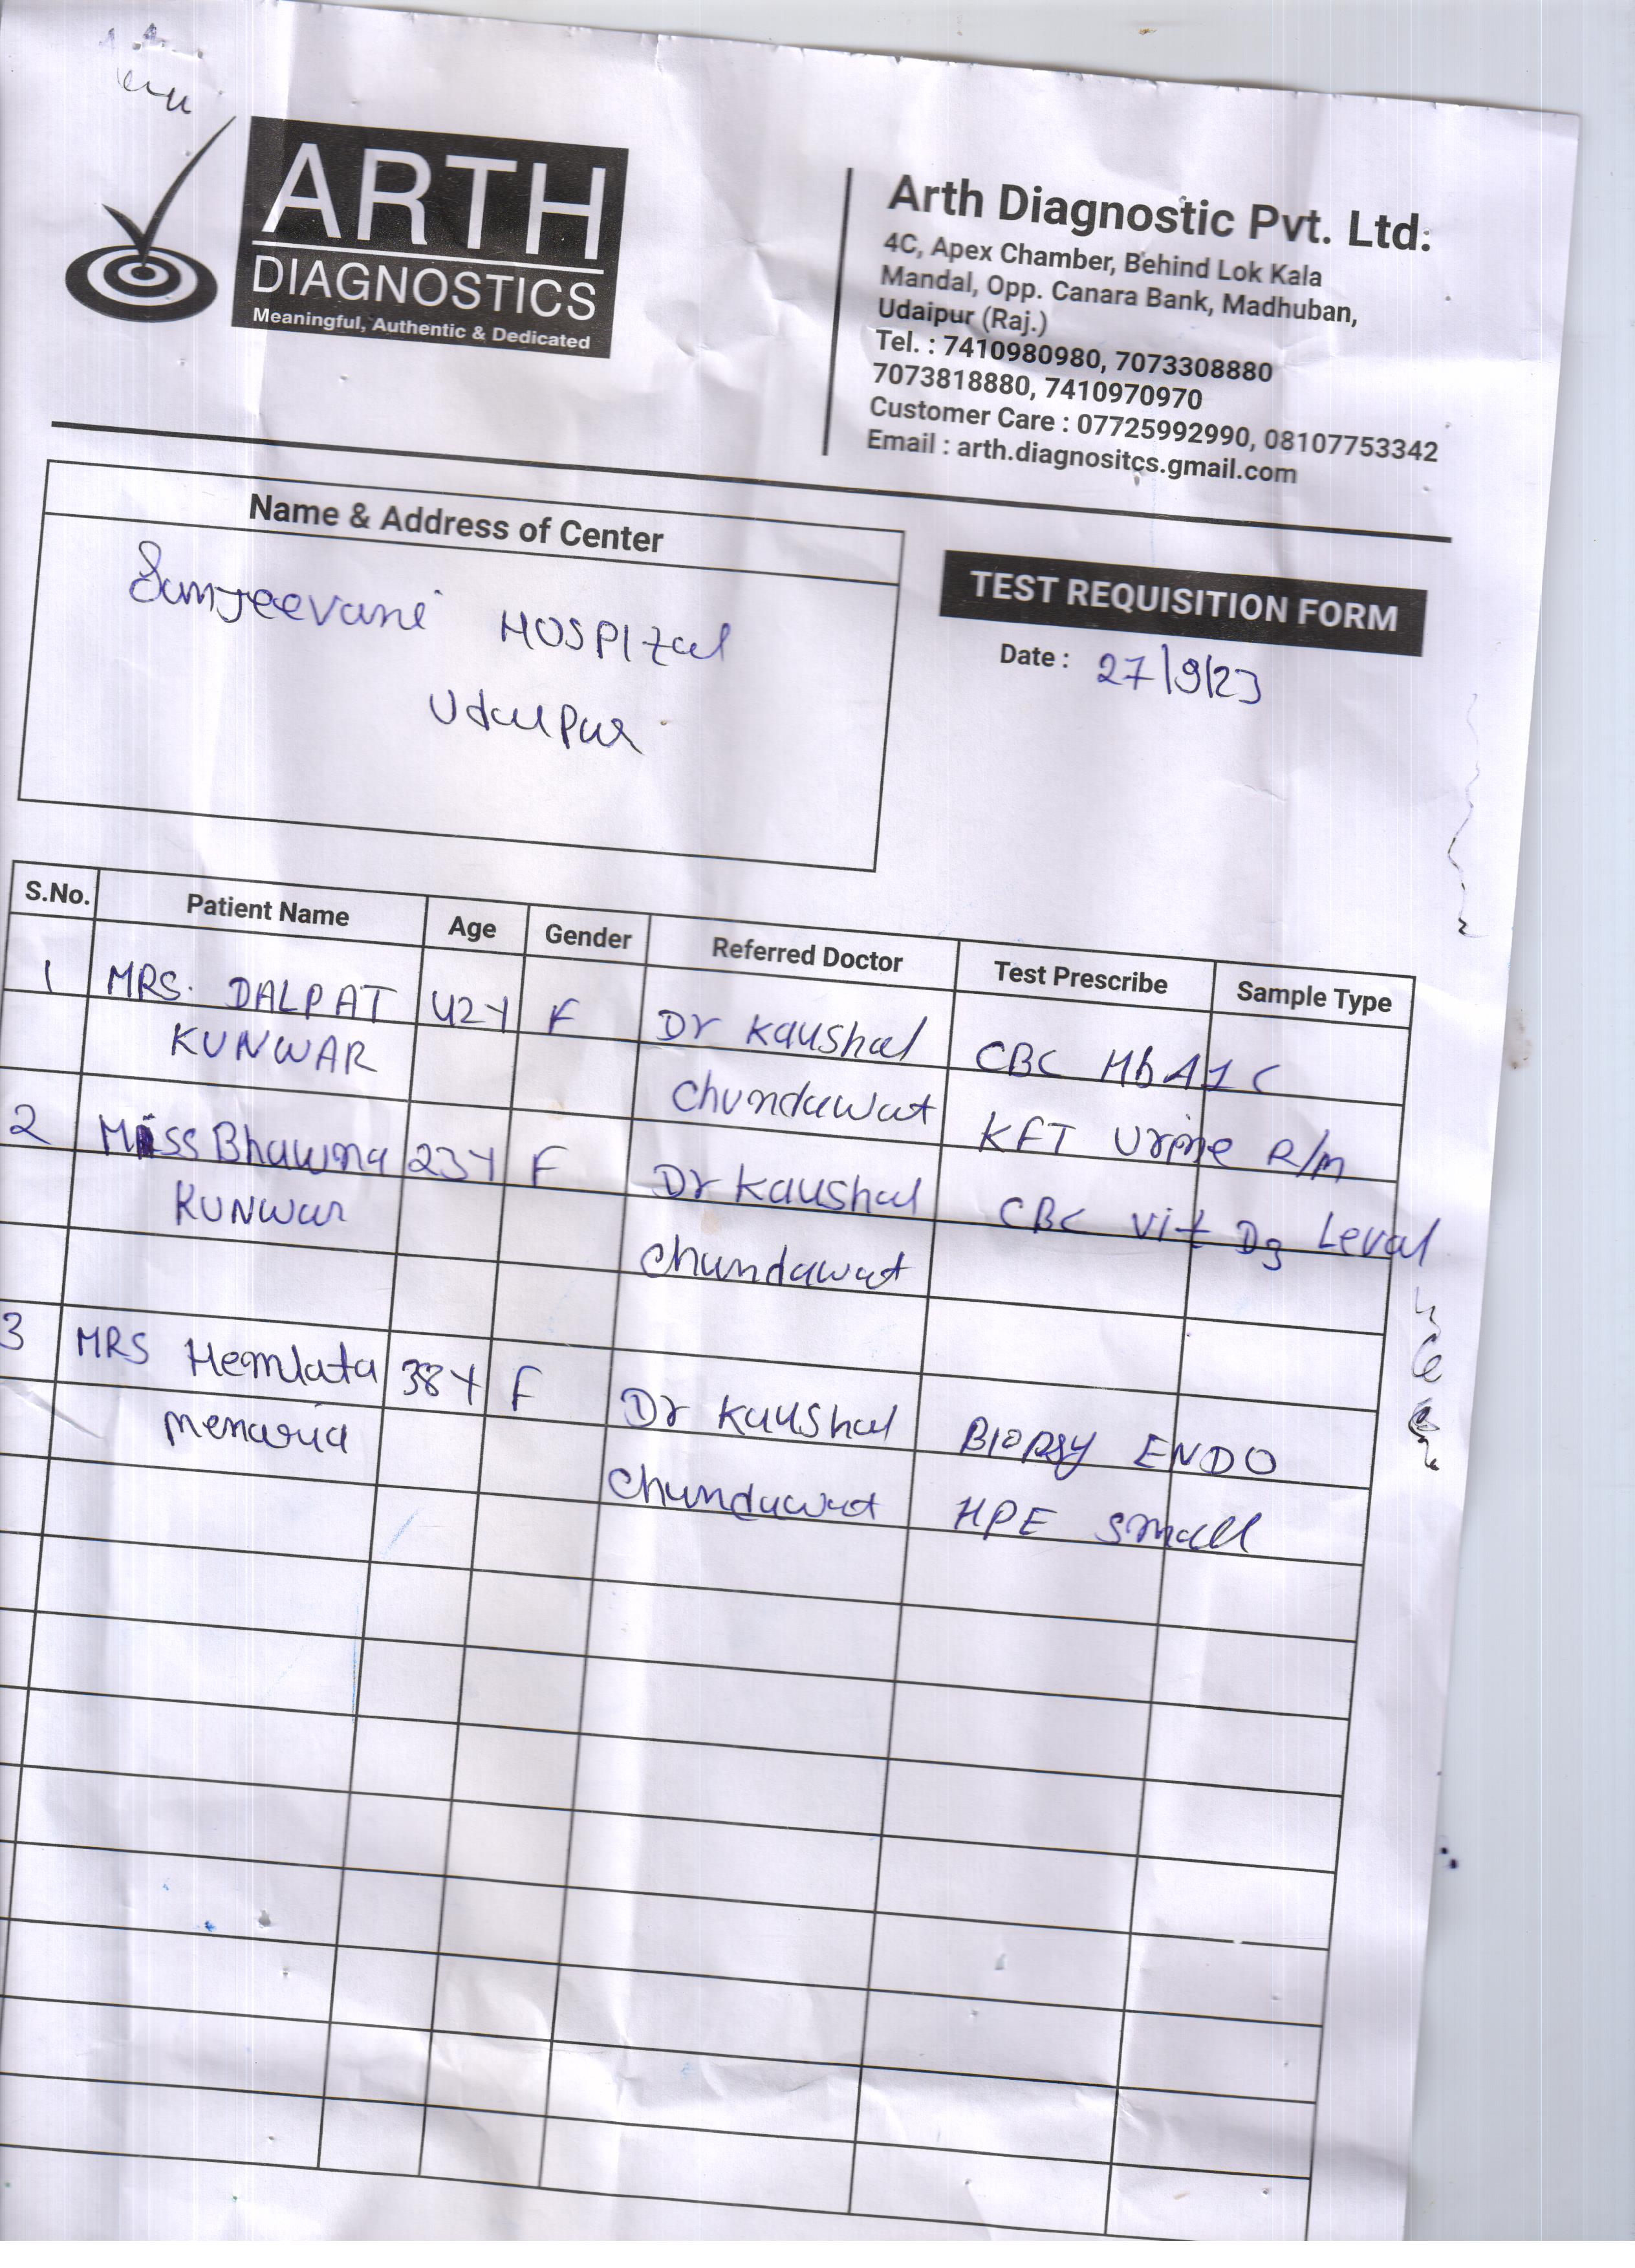 ARTH
DIAGNOSTICS
Meaningful, Authentic & Dedicated
Arth Diagnostic Pvt. Ltd.
4C, Apex Chamber, Behind Lok Kala
Mandal, Opp. Canara Bank, Madhuban,
Udaipur (Raj.)
Tel. : 7410980980, 7073308880
7073818880, 7410970970
Customer Care : 07725992990, 08107753342
Email : arth.diagnositcs.gmail.com
Name & Address of Center
Sunjeevani HOSPItal
Udaipur
TEST REQUISITION FORM
Date : 27/9/23
S.No. Patient Name Age Gender Referred Doctor Test Prescribe Sample Type
1 MRS. DALPAT 42Y F Dr Kaushal CBC HbA1C
KUNWAR Chundawat KFT Urine R/m
2 Miss Bhawna 23Y F Dr Kaushal CBC vit D3 Leval
KUNWar Chundawat
3 MRS Hemlata 38Y F Dr Kaushal BIOPSY ENDO
menaria Chundawat HPE small